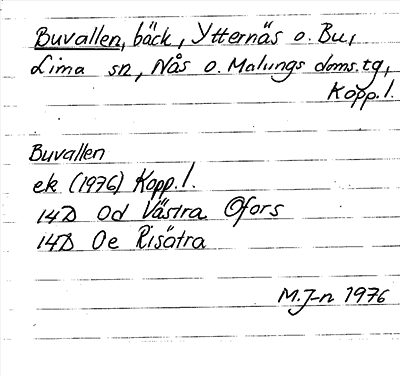 Buvallen, bäck, Ytternäs o. Bu,
Lima sn, Nås o. Malungs doms.tg,
Kopp.l.
Buvallen
ek (1976) Kopp.l.
14D 0d Västra Ofors
14D 0e Risätra
M.J-n 1976